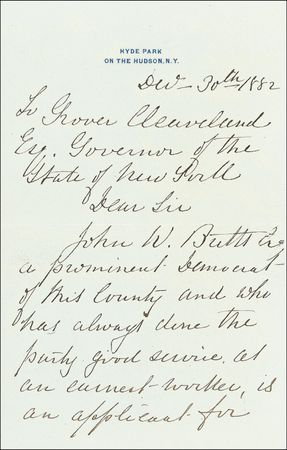 HYDE PARK
ON THE HUDSON, N.Y.
Dec 30th 1882
To Grover Cleaveland
Esq. Governor of the
State of New York
Dear Sir
John W. Butts Esq
a prominent Democrat
of this County and who
has always done the
party good service, as
an earnest worker, is
an applicant for